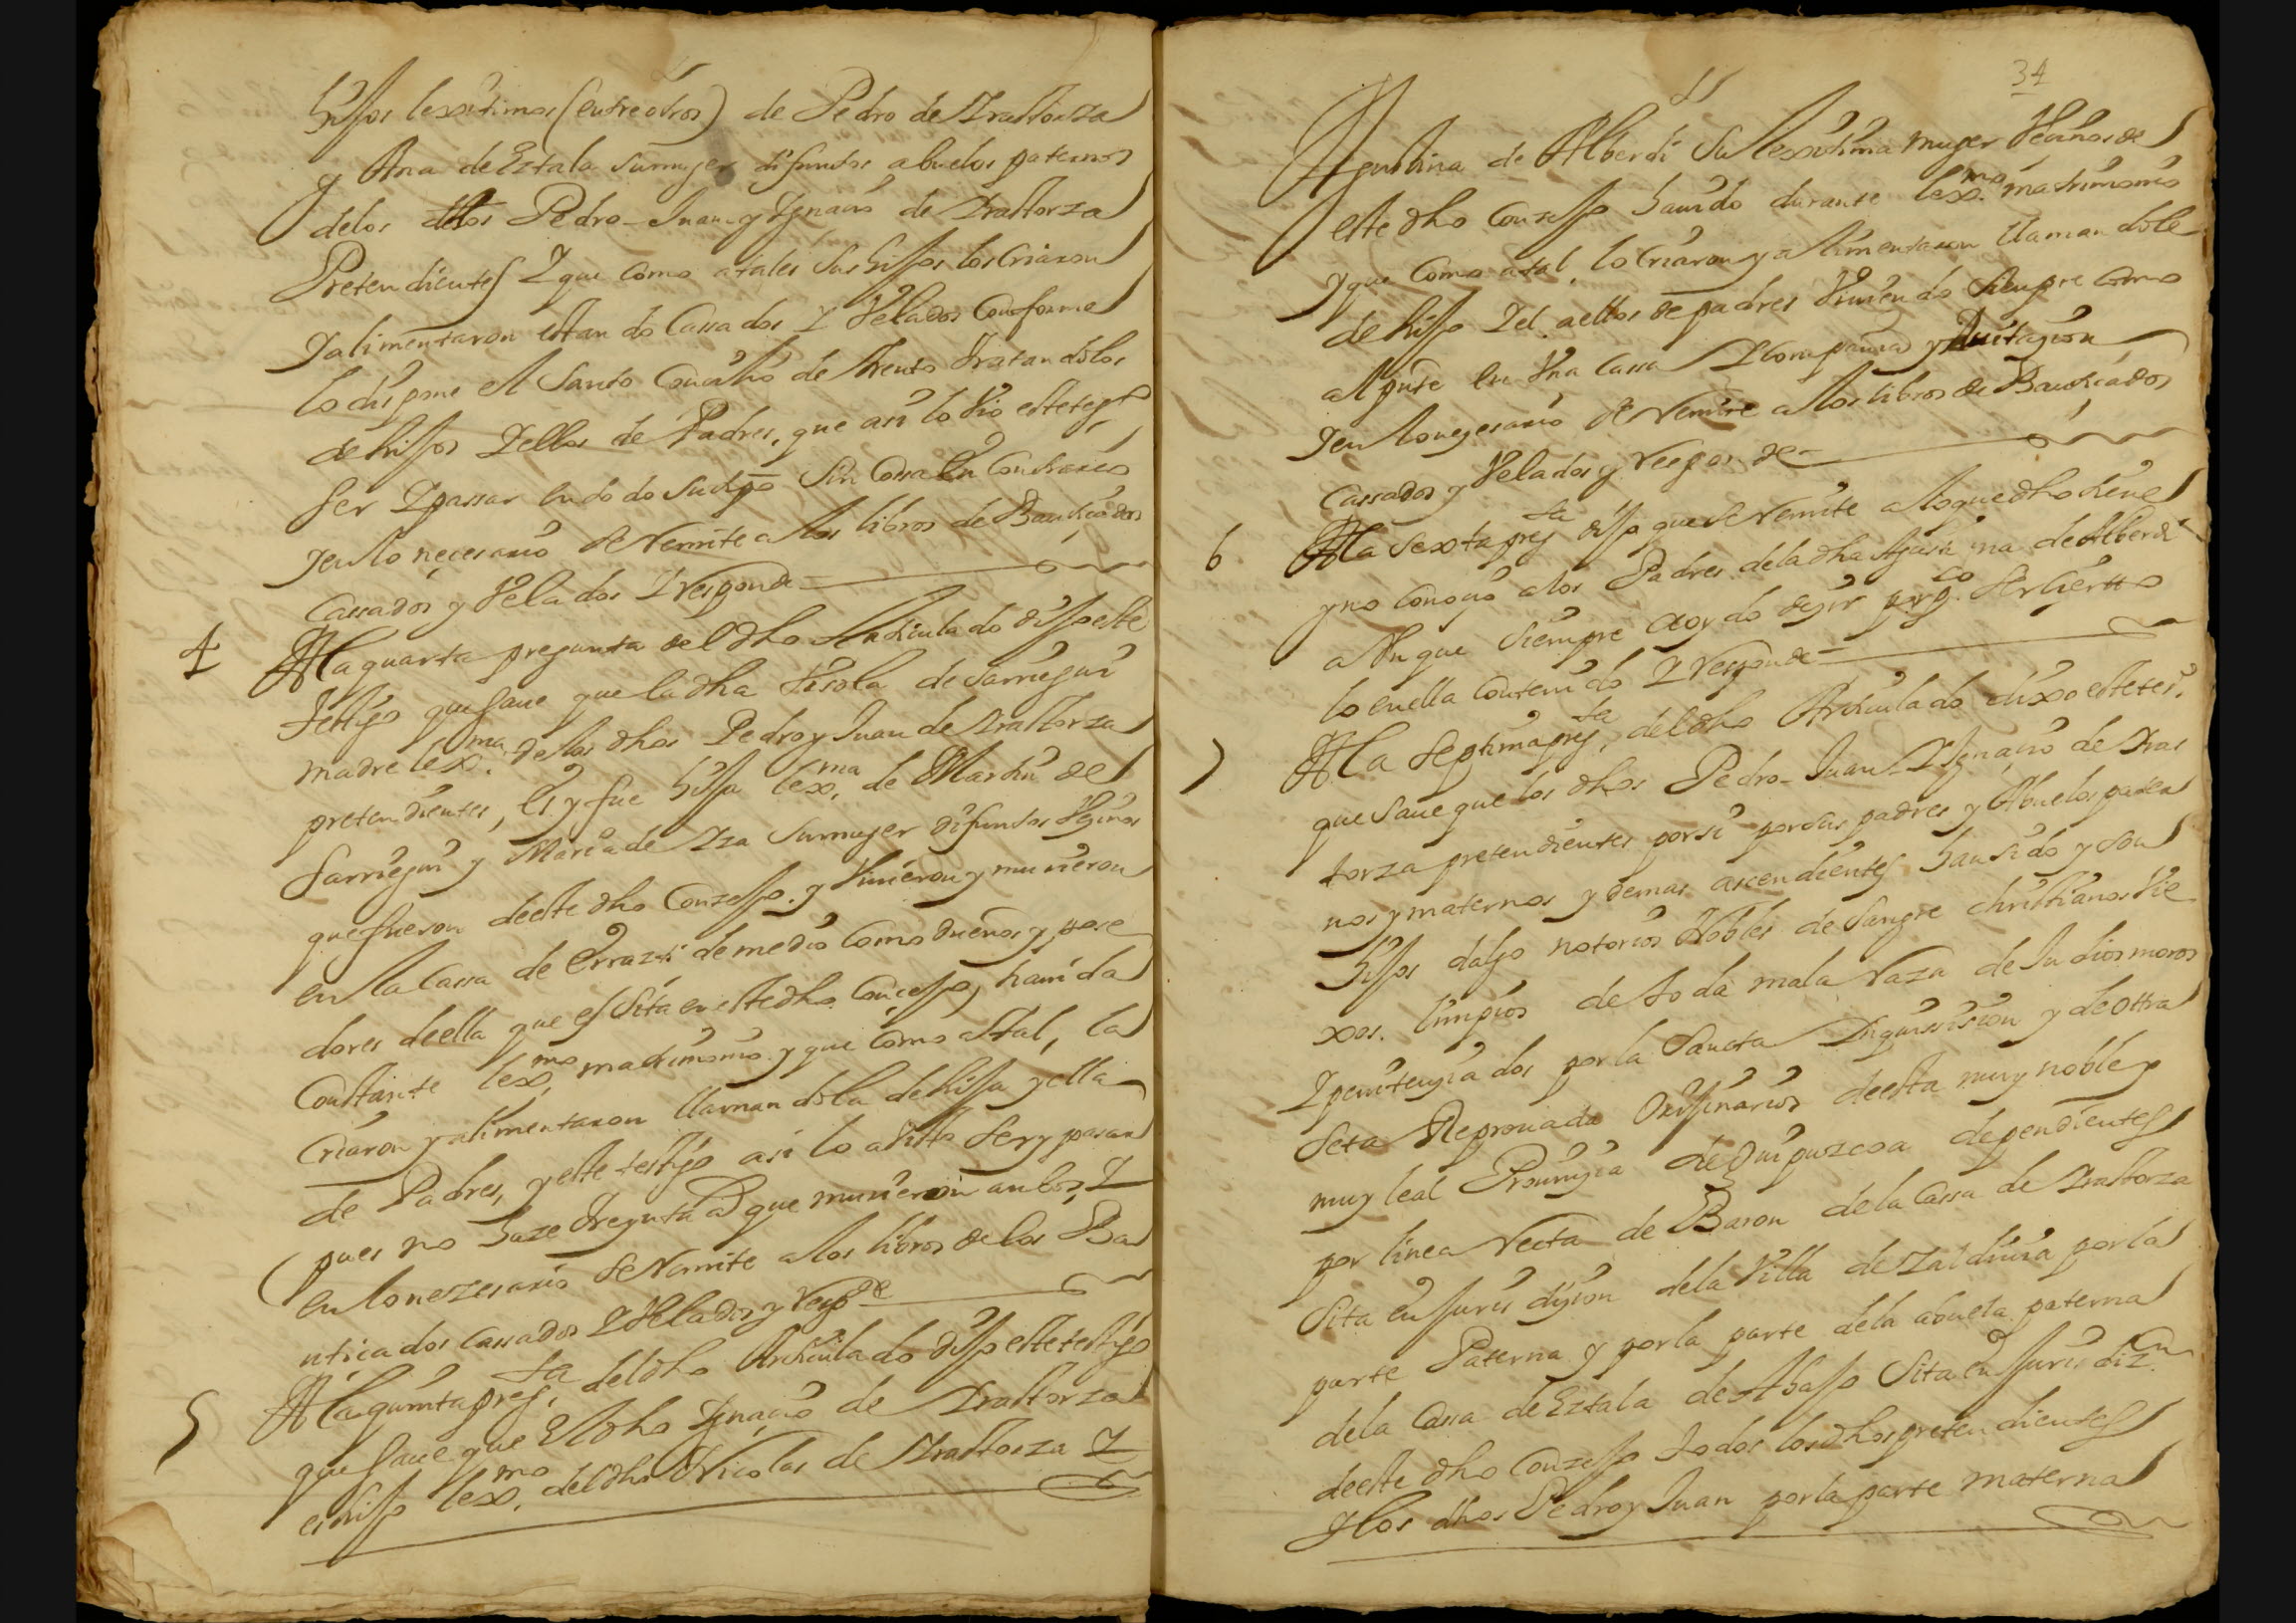 hijos lexitimos (entre otros) de Pedro de Yrastorza
y Ana de Eztala su muger difuntos abuelos paternos
de los dhos Pedro - Juan y Ygnacio de Yrastorza
Pretendientes Y que como a tales sus hijos los Criaron
Y alimentaron estando Cassados Y Velados Conforme
lo dispone el Santo Concilio de Trento Tratandolos
de hijos Y ellos de Padres, que asi lo Vio este testo
ser Y passar en todo su tpo sin Cossa En Contrario
y en lo necesario se Remite a los libros de Bautiçados
Cassados y Velados Y Responde
4 A la quarta pregunta del dho Articulado dijo este
testigo que saue que la dha Vsola de Sarriegui
madre lexma. de los dhos Pedro y Juan de Yrastorza
pretendientes, Es y fue hija lexma. de Martin de
Sarriegui y Maria de Yza su muger difuntos Veginos
que fueron de este dho Conzejo. y Viuieron y murieron
en la Cassa de Errazti de medio Como dueños y posse
dores de ella que es Sita en este dho Conçejo, hauida
Constante lexmo matrimonio. y que Como a tal, la
Criaron y alimentaron llamandola de hija y ella
de Padres, y este testigo asi lo a visto ser y pasar
pues no haze treynta as que murieron anbos, Y
en lo nezesario se Remite a los libros de los Ba
uticados Cassados Y Velados y Respde
5 A la quinta pregta. del dho Articulado dijo este testigo
que saue que El dho Ygnaçio de Yrastorza
es hijo lexmo. del dho Nicolas de Yrastorza Y
34
Agustina de Alberdi su lexitima muger Vecinos de
este dho Conzejo hauido durante lexmo. matrimonio
Y que Como a tal, lo Criaron y alimentaron llamandole
de hijo Y el a ellos de padres Viuiendo sienpre como
al pnte en Vna Cassa Y Conpañia y auitaçion
Y en lo neçesario se Remite a los libros de Bautiçados
Cassados y Velados y Responde
6 A la Sexta pregta dijo que se Remite a lo que dho tiene
y no Conoçio a los Padres de la dha Agustina de Alberdi
a Vn que Siempre a oydo deçir por pco. ser Cierto
lo en ella Contenido Y Responde
7 A la Septima pregta, del dho Articulado dixo este tesº.
que saue que los dhos Pedro - Juan - Y Ygnaçio de Yras
torza pretendientes por si por sus padres y Abuelos pater
nos y maternos y demas ascendientes han sido y son
hijos dalgo notorios Nobles de Sangre christianos Vie
xos. limpios de toda mala Raza de Judios moros
Y penitençiados por la Sancta Ynquissision y de otra
Seta Reprouada Orijinarios de esta muy noble y
muy leal Prouinçia de Guipuzcoa dependientes
por linea Recta de Baron de la Cassa de Yrastorza
Sita en Jurisdiçion de la Villa de Zaldiuia por la
parte Paterna y por la parte de la abuela paterna
de la Cassa de Eztala de Abajo Sita en Jurisdizon
de este dho Conzejo todos los dhos pretendientes
Y los dhos Pedro y Juan por la parte materna